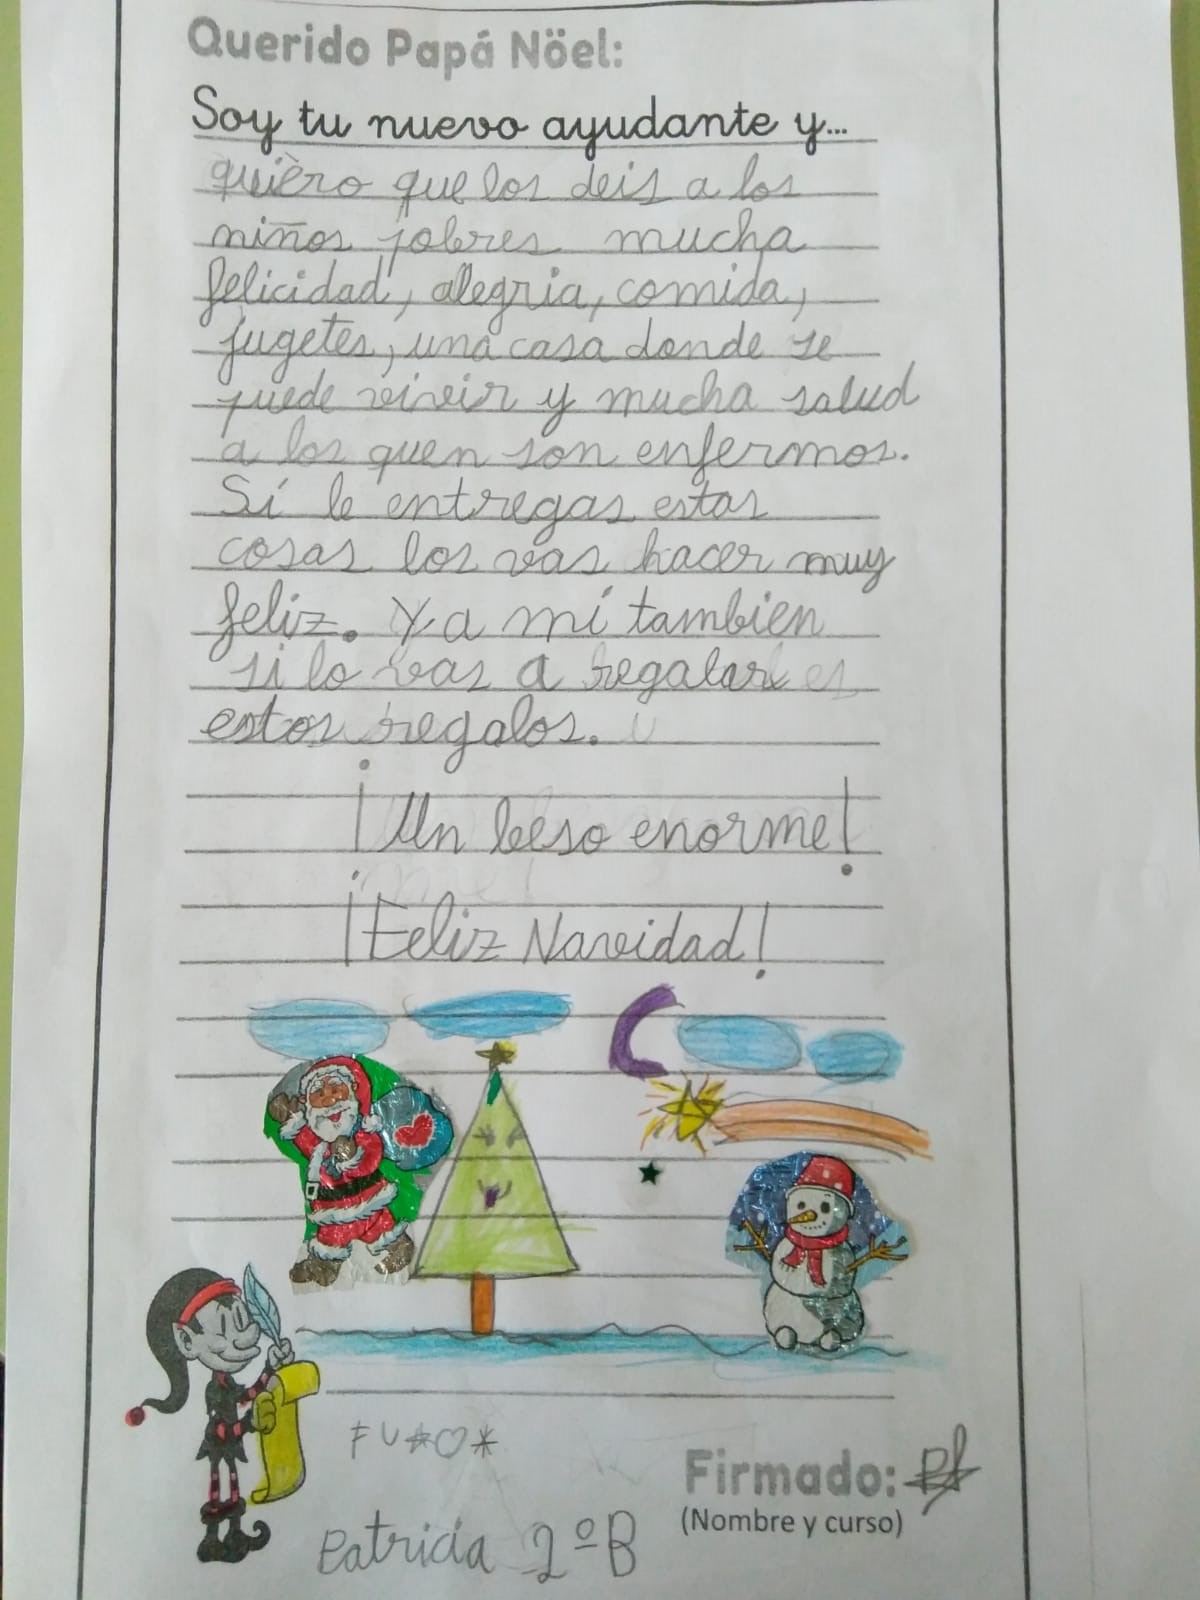 Querido Papá Nöel:
Soy tu nuevo ayudante y...
quiero que los deis a los
niños pobres mucha
felicidad, alegria, comida,
jugetes, una casa donde se
puede vivir y mucha salud
a los quen son enfermos.
Sí le entregas estas
cosas los vas hacer muy
feliz. Y a mí tambien
si lo vas a regalar
estos regalos.
¡Un beso enorme!
¡Feliz Navidad!
Firmado:
(Nombre y curso)
Patricia 2ºB